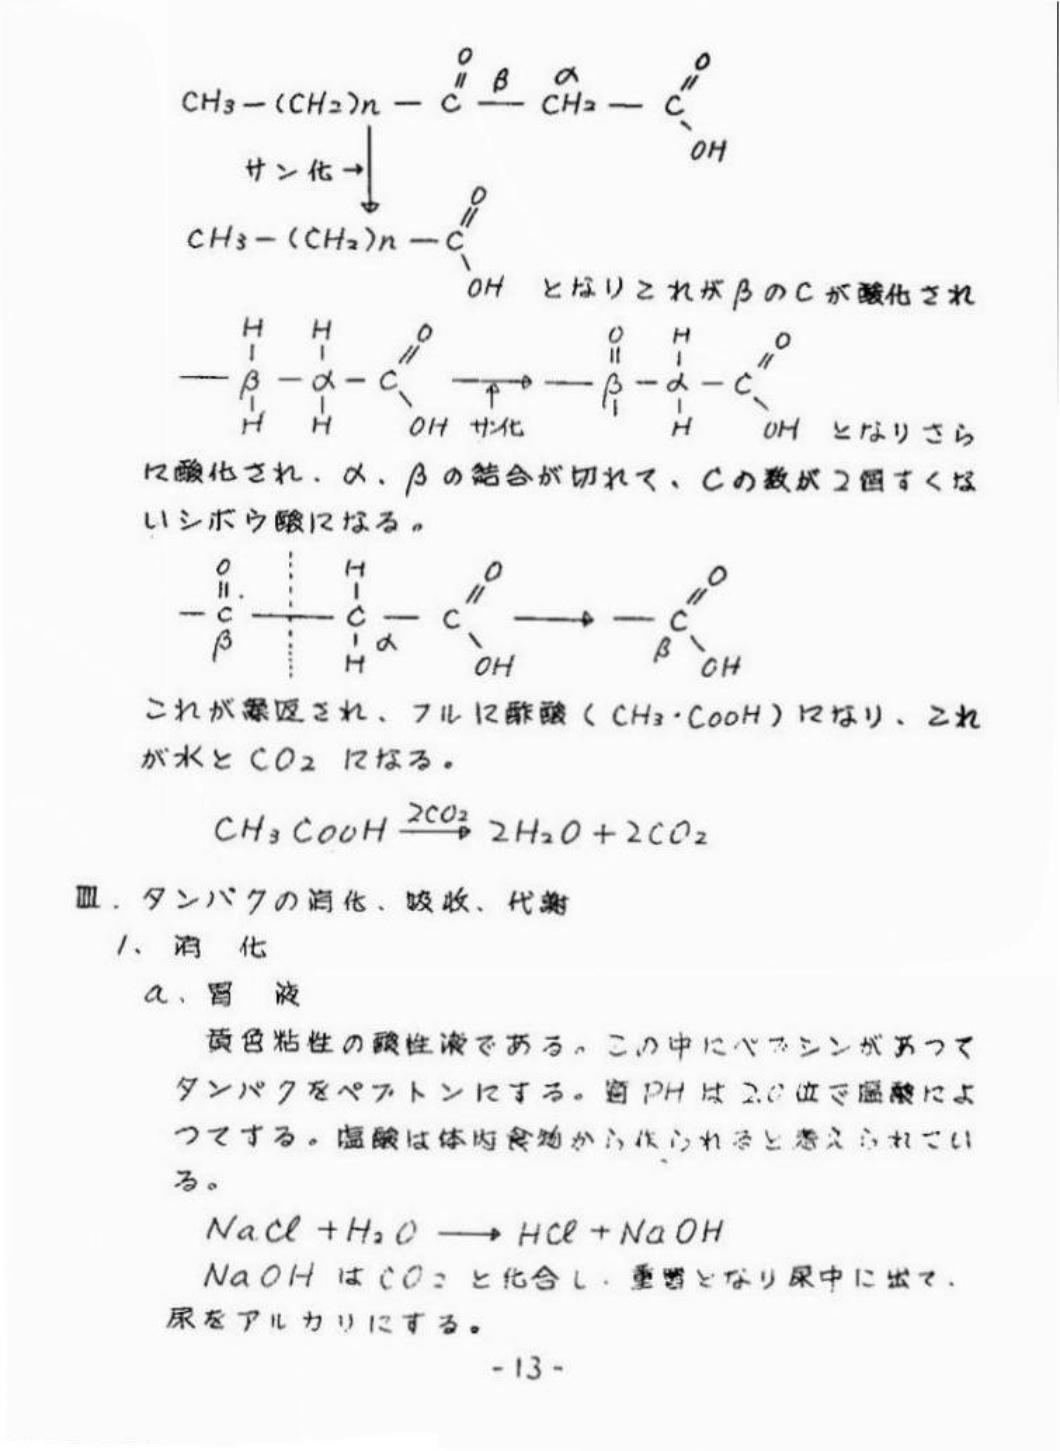 CH₃－(CH₂)n － C(=O) －β－ CH₂(α) － C(=O)OH
サン化→
CH₃－(CH₂)n －C(=O)
OH となりこれがβのCが酸化され
H H O O H O
－β－α－C → －β－α－C
H H OH サン化 H OH となりさら
に酸化され．α、βの結合が切れて、Cの数が2個すくな
いシボウ酸になる。
O H O O
－C－C－C → －C
β H α OH β OH
これが繰返され、フルに酢酸（CH₃・COOH）になり、これ
が水とCO₂になる。
CH₃COOH 2CO₂→ 2H₂O＋2CO₂
Ⅲ．タンパクの消化、吸收、代謝
1、消 化
a、胃 液
黄色粘性の酸性液である。この中にペプシンがあつて
タンパクをペプトンにする。適PHは2.0位で塩酸によ
つてする。塩酸は体内食物から作られると考えられてい
る。
NaCl＋H₂O → HCl＋NaOH
NaOHはCO₂と化合し．重曹となり尿中に出て．
尿をアルカリにする。
-13-